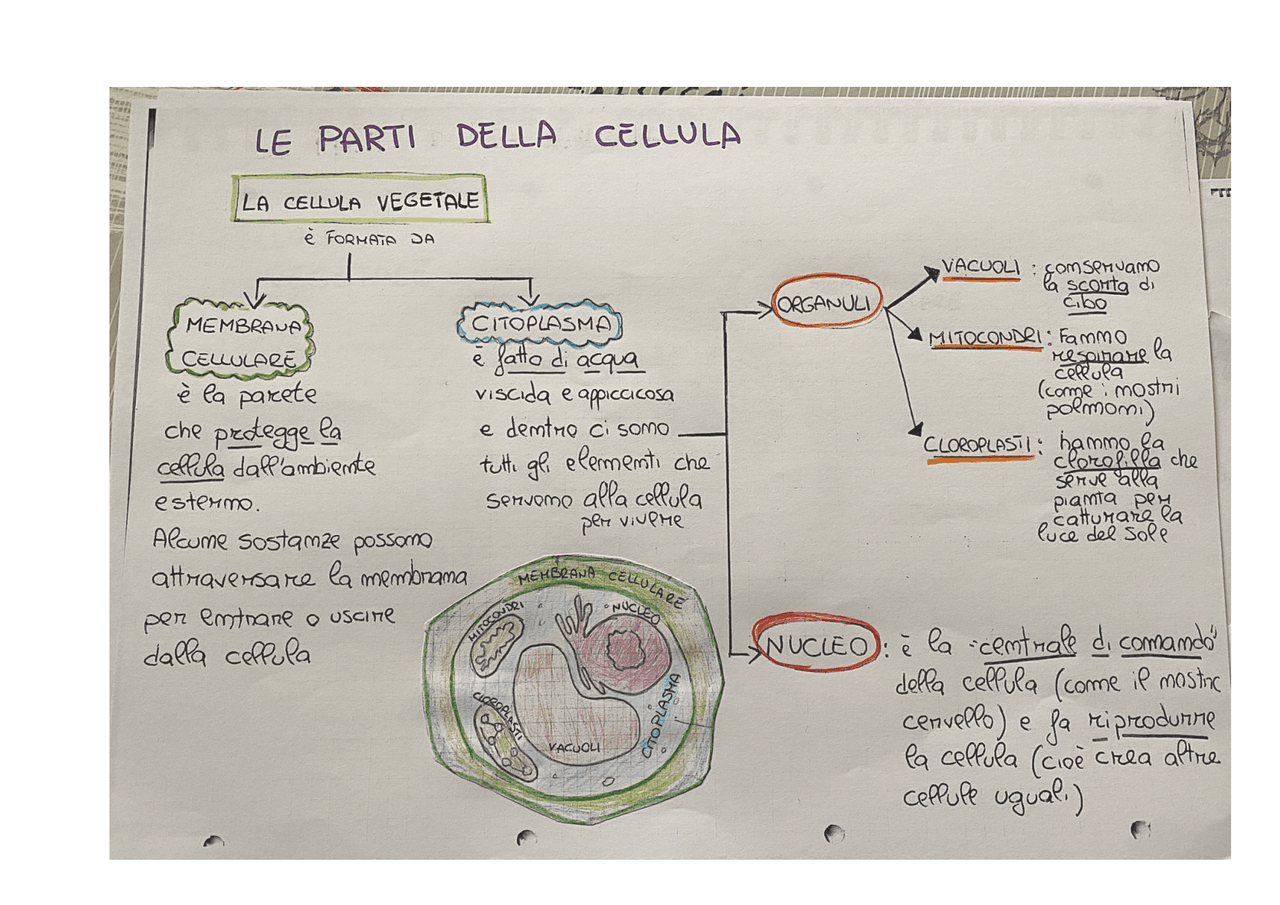 LE PARTI DELLA CELLULA
LA CELLULA VEGETALE
è FORMATA DA
MEMBRANA
CELLULARE
è la parete
che protegge la
cellula dall'ambiente
esterno.
Alcune sostanze possono
attraversare la membrana
per entrare o uscire
dalla cellula
CITOPLASMA
è fatto di acqua
viscida e appiccicosa
e dentro ci sono
tutti gli elementi che
servono alla cellula
per vivere
ORGANULI
VACUOLI : conservano
la scorta di
cibo
MITOCONDRI: fanno
respirare la
cellula
(come i nostri
polmoni)
CLOROPLASTI: hanno la
clorofilla che
serve alla
pianta per
catturare la
luce del sole
NUCLEO : è la "centrale di comando"
della cellula (come il nostro
cervello) e fa riprodurre
la cellula (cioè crea altre
cellule uguali)
MEMBRANA CELLULARE
MITOCONDRI
NUCLEO
CLOROPLASTI
CITOPLASMA
VACUOLI